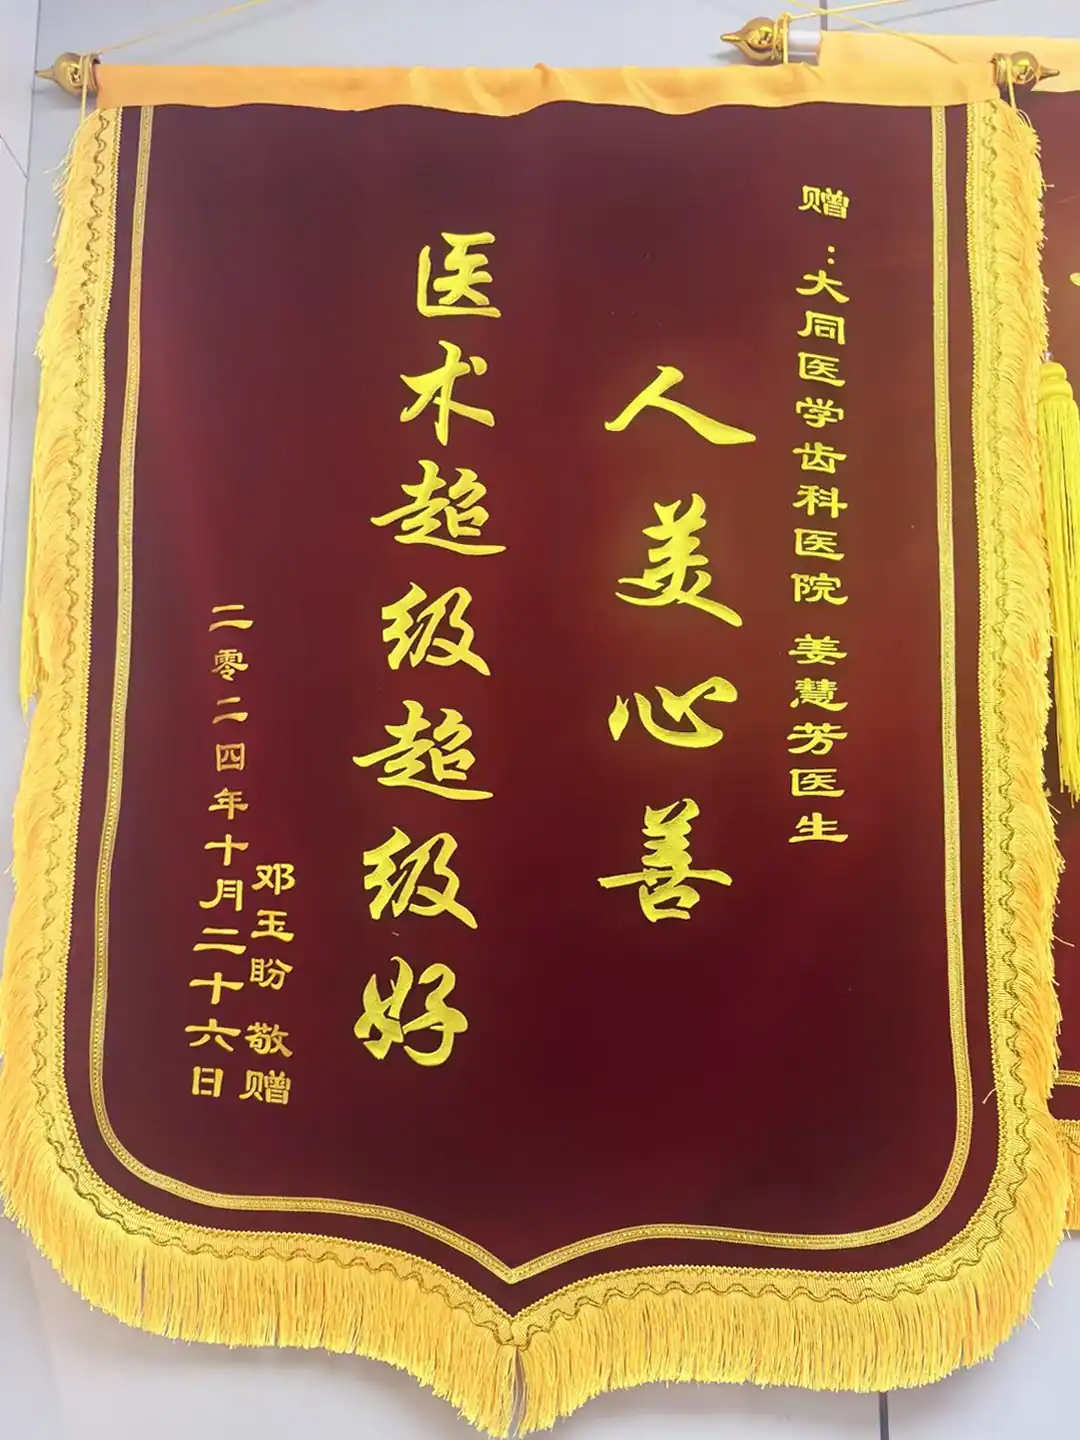 赠：大同医学齿科医院 姜慧芳医生
人美心善
医术超级超级好
邓玉盼 敬赠
二零二四年十月二十六日